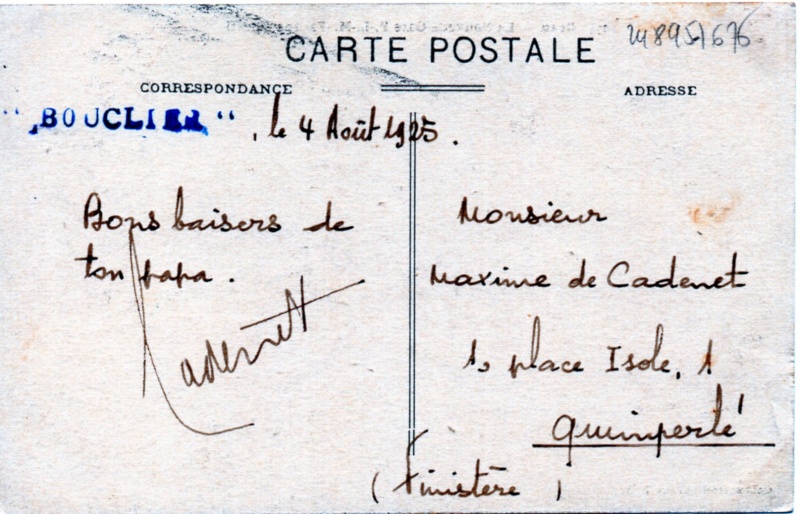 248951676
CARTE POSTALE
CORRESPONDANCE
ADRESSE
"BOUCLIER", le 4 Août 1925.
Bons baisers de
ton papa.
Cadenet
Monsieur
Maxime de Cadenet
1, place Isole, 1
Quimperlé
(Finistère)